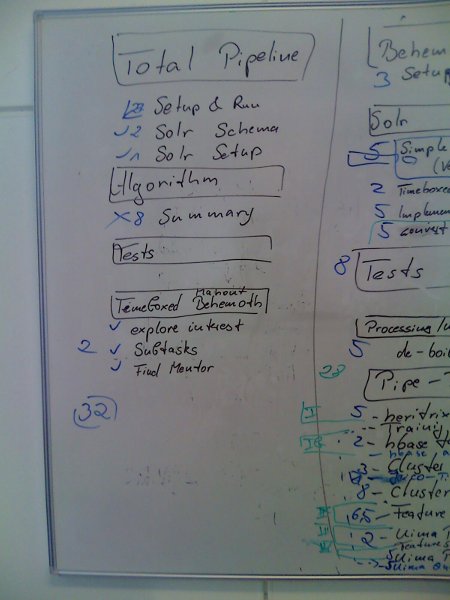 Total Pipeline
Setup & Run
✓ 2 Solr Schema
✓ 1 Solr Setup
Algorithm
X 8 Summary
Tests
Mahout
TimeBoxed Behemoth
✓ explore interest
2 ✓ Subtasks
✓ Find Mentor
32
Behem
3 Setup
Solr
5 Simple
2 Timeboxed
5 Implemen
5 convert
8 Tests
Processing/
5 de-boil
22
Pipe-
5 - heritrix
Traini
2 - hbase
hbase
3 Cluster
8 - Cluster
6,5 - Feature
2 - Uima
Features
5 Uima
5 Uima